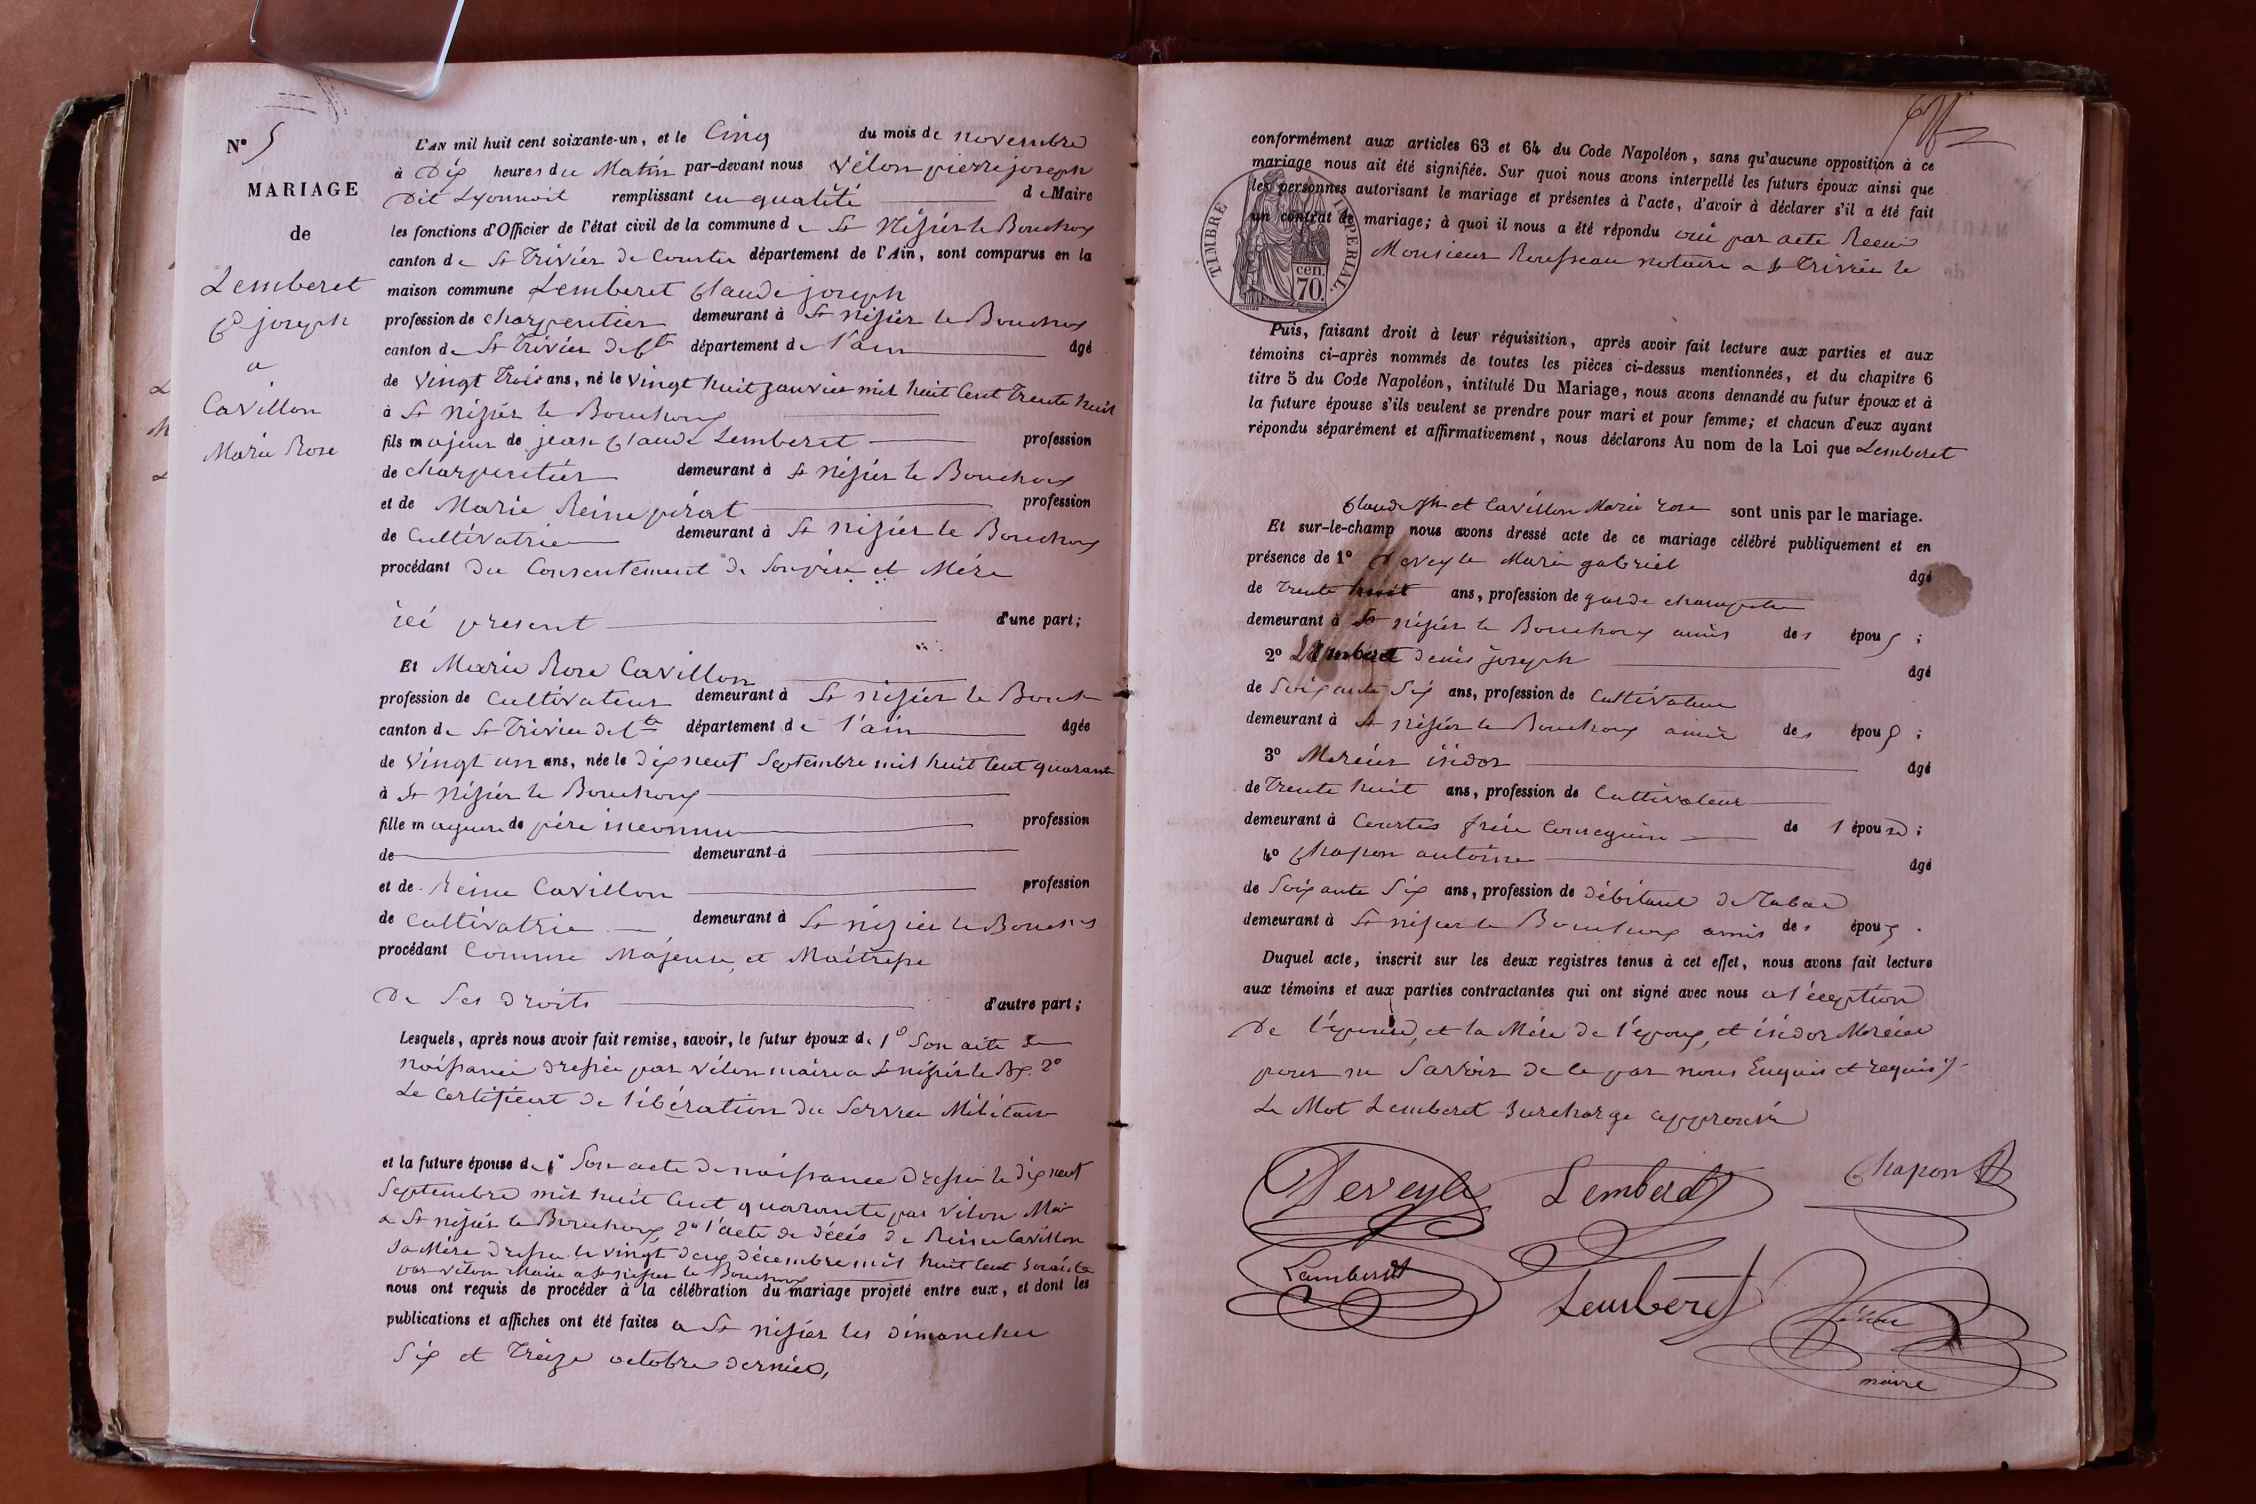 N° 5
MARIAGE
de
Lemberet
Cde joseph
a
Cavillon
Marie Rose
L'AN mil huit cent soixante-un, et le Cinq du mois de novembre
à Dix heures du Matin par-devant nous Vélon pierre joseph
Dit Lyonnoit remplissant en qualité de Maire
les fonctions d'Officier de l'état civil de la commune de St Nizier le Bouchoux
canton de St Trivier de Courtes département de l'Ain, sont comparus en la
maison commune Lemberet Claude joseph
profession de charpentier demeurant à St nizier le Bouchoux
canton de St Trivier de Ctes département de l'ain âgé
de vingt trois ans, né le vingt huit janvier mil huit cent trente huit
à St Nizier le Bouchoux
fils majeur de jean Claude Lemberet profession
de charpentier demeurant à St Nizier le Bouchoux
et de Marie Reine pirat profession
de Cultivatrice demeurant à St Nizier le Bouchoux
procédant du Consentement de Son père et Mère
ici present d'une part;
Et Marie Rose Cavillon
profession de Cultivateur demeurant à St nizier le Bouch
canton de St Trivier de Ctes département de l'ain âgée
de vingt un ans, née le dix neuf Septembre mil huit cent quarante
à St Nizier le Bouchoux
fille mageure de père inconnu profession
de demeurant à
et de Reine Cavillon profession
de Cultivatrice demeurant à St nizier le Bouchx
procédant Comme Majeure et Maitresse
De Ses droits d'autre part;
Lesquels, après nous avoir fait remise, savoir, le futur époux de 1° Son acte de
naissance dressée par vélon maire a St nizier le Bx. 2°
Le Certificat de libération du Service Militaire
et la future épouse de 1° Son acte de naissance dressé le dix neuf
Septembre mil huit Cent quarante par Vélon Mai
a St nizier le Bouchoux, 2° l'acte de décés de Reine Cavillon
Sa Mère dressé le vingt deux décembre mil huit Cent Soixante
par vélon Maire a St nizier le Bouchoux
nous ont requis de procéder à la célébration du mariage projeté entre eux, et dont les
publications et affiches ont été faites a St nizier les dimanches
Six et Treize octobre dernier,
conformément aux articles 63 et 64 du Code Napoléon, sans qu'aucune opposition à ce
mariage nous ait été signifiée. Sur quoi nous avons interpellé les futurs époux ainsi que
les personnes autorisant le mariage et présentes à l'acte, d'avoir à déclarer s'il a été fait
un contrat de mariage; à quoi il nous a été répondu oui par acte Recu
Monsieur Rousseau notaire a St Trivier le
TIMBRE IMPERIAL
70 cen.
Puis, faisant droit à leur réquisition, après avoir fait lecture aux parties et aux
témoins ci-après nommés de toutes les pièces ci-dessus mentionnées, et du chapitre 6
titre 5 du Code Napoléon, intitulé Du Mariage, nous avons demandé au futur époux et à
la future épouse s'ils veulent se prendre pour mari et pour femme; et chacun d'eux ayant
répondu séparément et affirmativement, nous déclarons Au nom de la Loi que Lemberet
Claude Jh et Cavillon Marie rose sont unis par le mariage.
Et sur-le-champ nous avons dressé acte de ce mariage célébré publiquement et en
présence de 1° Deveyle Marie gabriel âgé
de trente huit ans, profession de garde champetre
demeurant à St nizier le Bouchoux amis des époux;
2° Lemberet denis joseph âgé
de Soixante Six ans, profession de Cultivateur
demeurant à St nizier le Bouchoux amis des époux;
3° Mercier isidor âgé
de Trente huit ans, profession de Cultivateur
demeurant à Courtes frère Conseguin de l'épouse;
4° Chapon antoine âgé
de Soixante Six ans, profession de débitant de Tabac
demeurant à St nizier le Bouchoux amis des époux.
Duquel acte, inscrit sur les deux registres tenus à cet effet, nous avons fait lecture
aux témoins et aux parties contractantes qui ont signé avec nous a l'eception
De l'épouse, et la Mère de l'époux, et isidor Mercier
pour ne Savoir de ce par nous Enquis et requis
Le Mot Lemberet Surcharge approuvé
Deveyle Lemberet Chapon
Lemberet Lemberet Vélon
maire